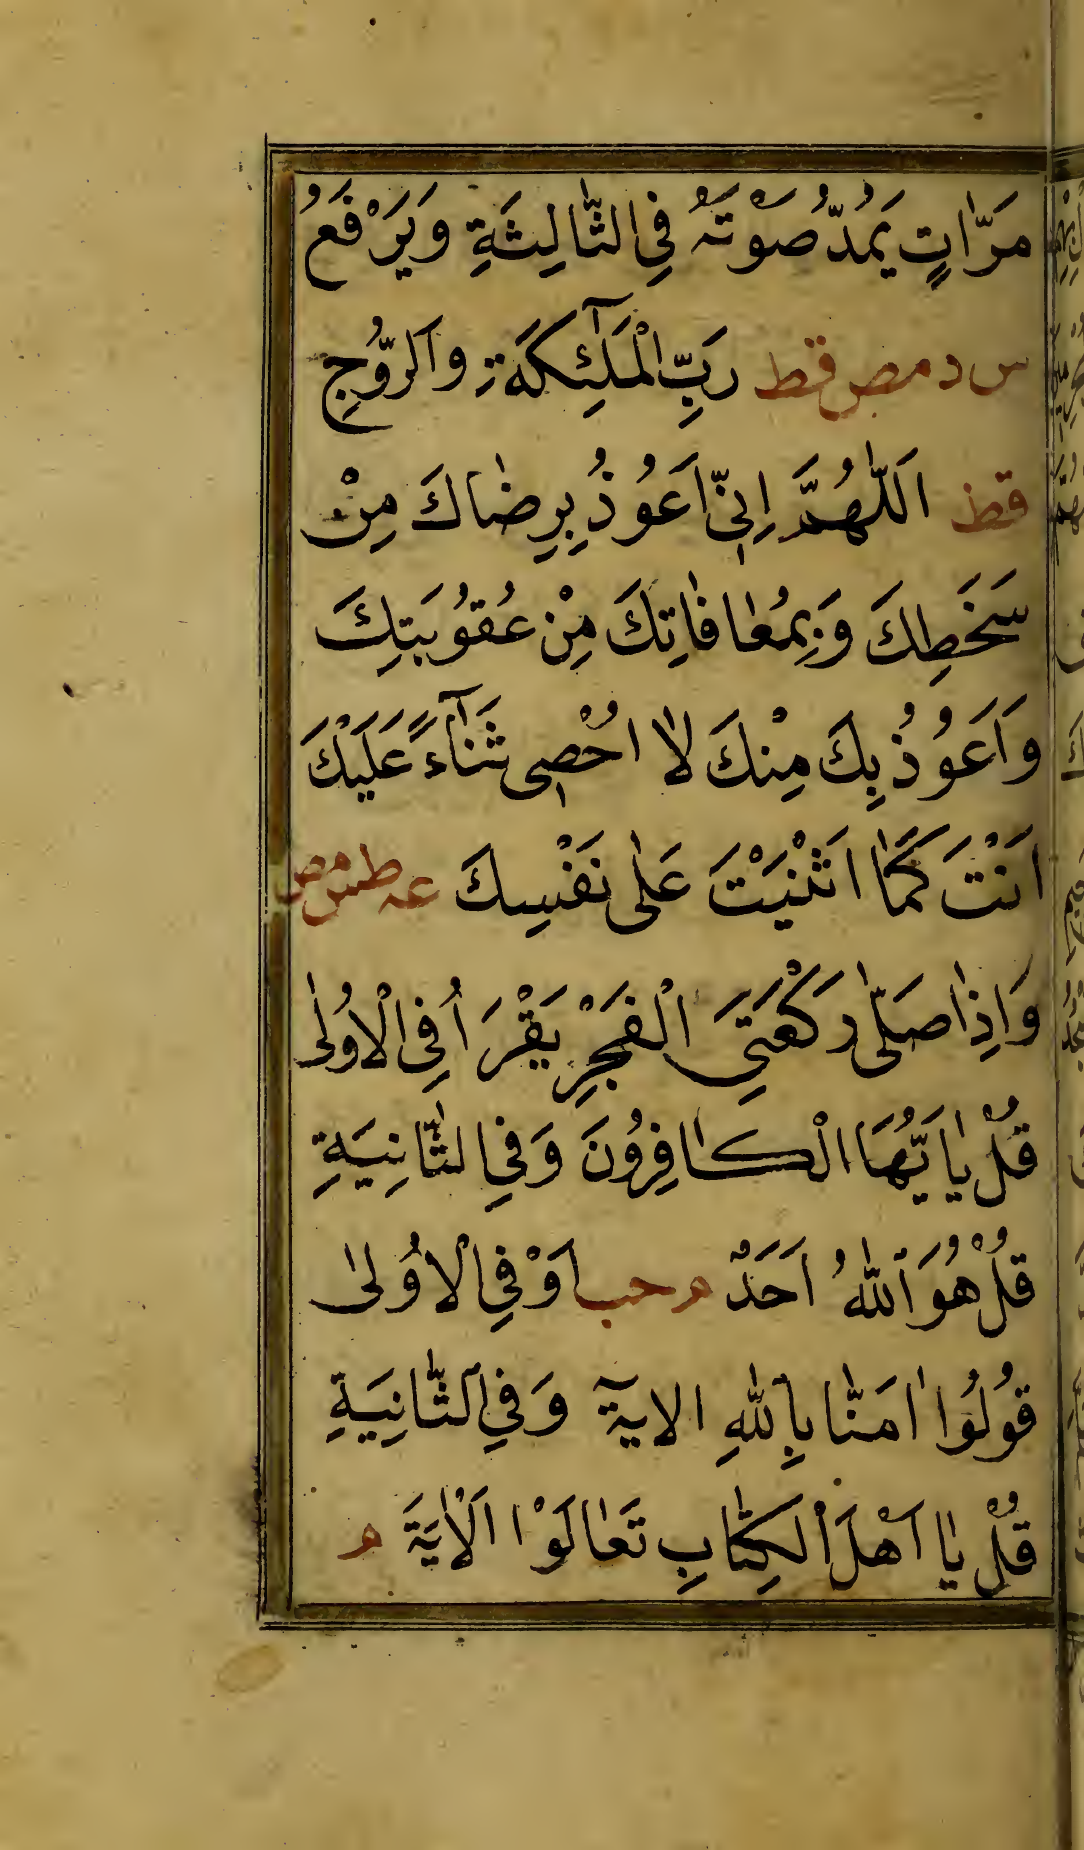 مَرَّاتٍ يَمُدُّ صَوْتَهُ فِي الثَّالِثَةِ وَيَرْفَعُ
س د مص قط رَبِّ الْمَلٰٓئِكَةِ وَالرُّوحِ
قط اَللّٰهُمَّ اِنِّي اَعُوذُ بِرِضٰاكَ مِنْ
سَخَطِكَ وَبِمُعٰافٰاتِكَ مِنْ عُقُوبَتِكَ
وَاَعُوذُ بِكَ مِنْكَ لٰا اُحْصِي ثَنٰٓاءً عَلَيْكَ
اَنْتَ كَمٰا اَثْنَيْتَ عَلٰى نَفْسِكَ عه طس مص
وَاِذٰا صَلّٰى رَكْعَتَيِ الْفَجْرِ يَقْرَاُ فِي الْاُولٰى
قُلْ يٰا اَيُّهَا الْكٰافِرُونَ وَفِي الثَّانِيَةِ
قُلْ هُوَ اللّٰهُ اَحَدٌ م حب اَوْ فِي الْاُولٰى
قُولُوا اٰمَنّٰا بِاللّٰهِ الاية وَفِي الثَّانِيَةِ
قُلْ يٰا اَهْلَ الْكِتٰابِ تَعٰالَوْا اَلْاٰيَةَ م